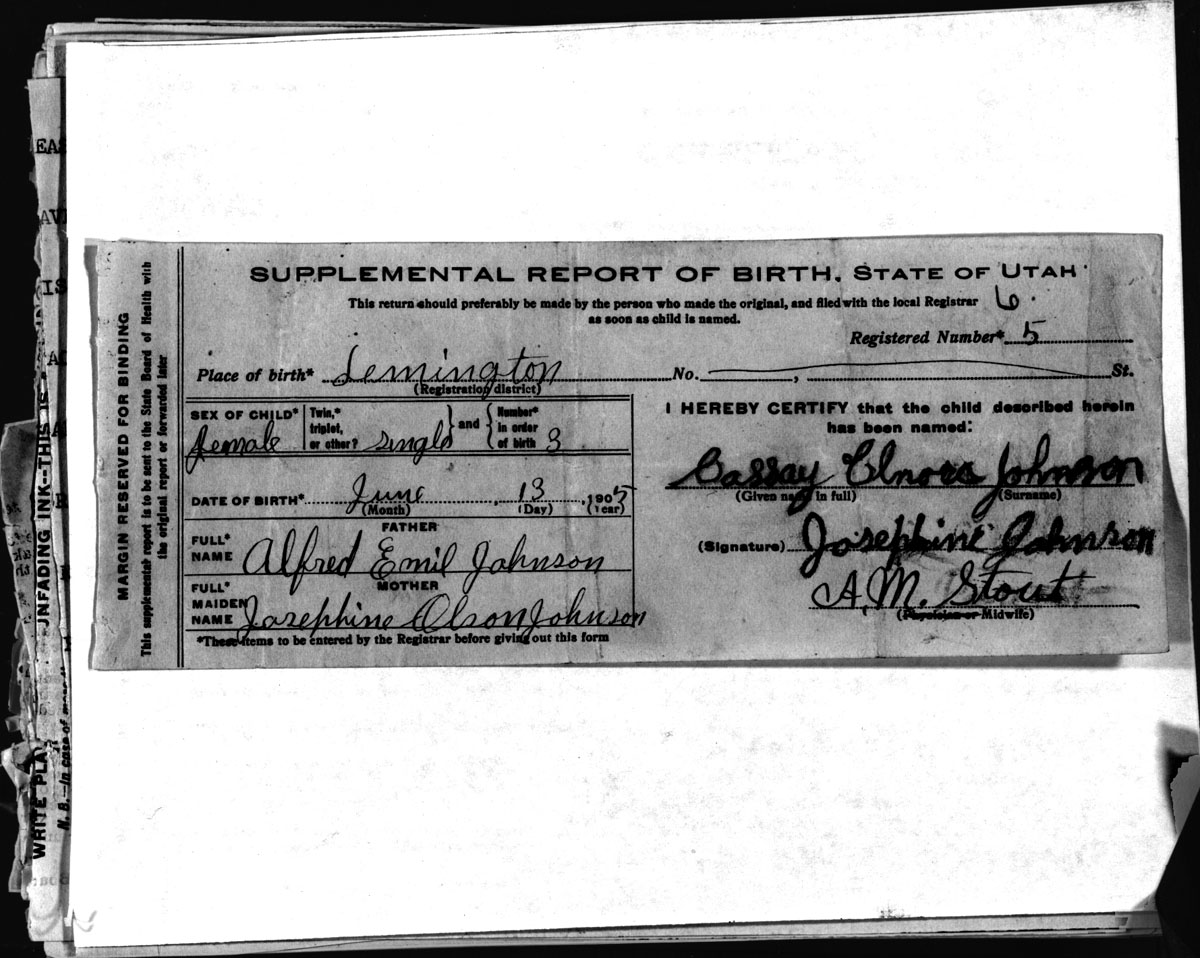 SUPPLEMENTAL REPORT OF BIRTH. STATE OF UTAH
This return should preferably be made by the person who made the original, and filed with the local Registrar
as soon as child is named.
6
Registered Number* 5
Place of birth* Lemington No. , St.
(Registration district)
SEX OF CHILD* Female
Twin,* triplet, or other? single
and
Number* in order of birth 3
DATE OF BIRTH* June , 13 , 1905
(Month) (Day) (Year)
FATHER
FULL* NAME Alfred Emil Johnson
MOTHER
FULL* MAIDEN NAME Josephine Olson Johnson
*These items to be entered by the Registrar before giving out this form
I HEREBY CERTIFY that the child described herein
has been named:
Cassay Elnora Johnson
(Given name in full) (Surname)
(Signature) Josephine Johnson
A. M. Stout
(Physician or Midwife)
MARGIN RESERVED FOR BINDING
This supplemental report is to be sent to the State Board of Health with
the original report or forwarded later
WRITE PLA
UNFADING INK--THIS IS
N. B.--In case of more
EAS
AV
IS